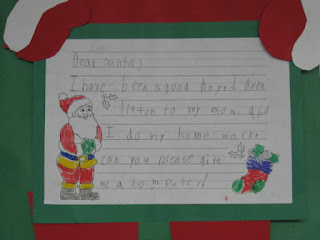 Dear santa,
I have been a good boy.I been
listen to my mom and
I do my home worke.
can you please give
me a computer?